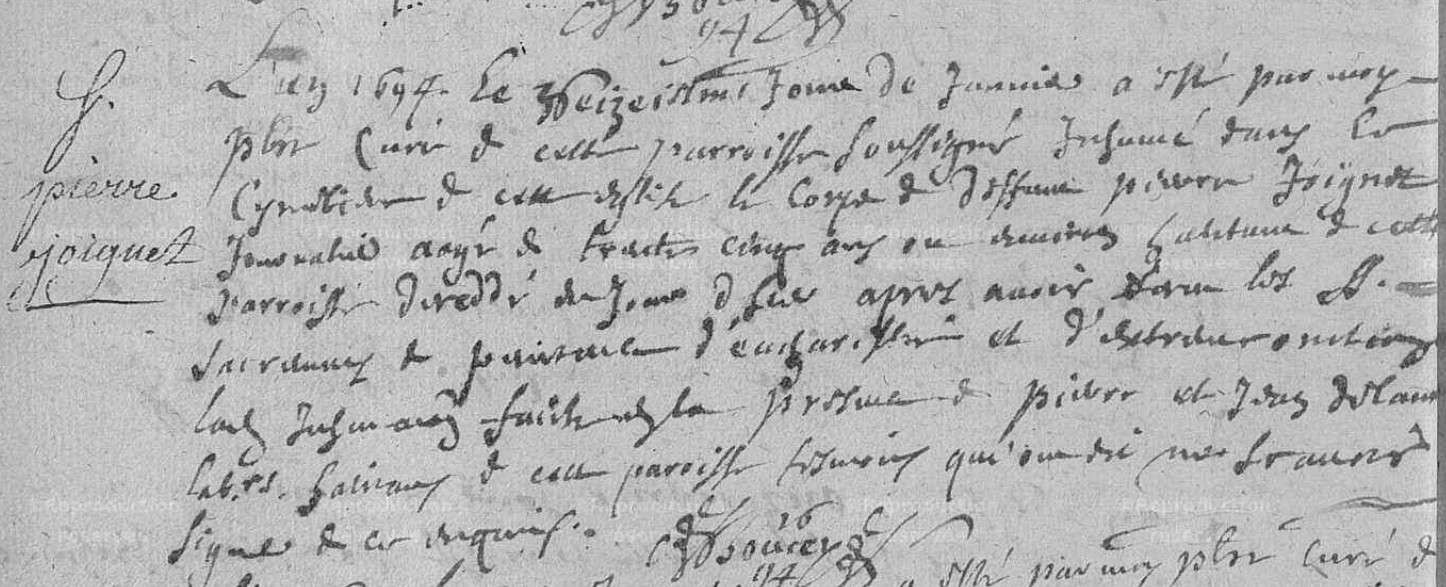 94
S.
pierre
joignet
L'an 1694. Le Seizeiesme Jour de Januier a esté par moy
pbre Curé de cette parroisse soussigné Inhumé dans le
Cymetiere de cette eglise le Corps de deffunt pierre Joignet
Journalier aagé de trente cinq ans ou enuiron habitant de cette
Parroisse decedé du Jour d'hier apres auoir receu les SS.
Sacremens de penitence d'eucharistie et d'extremeonction
lad. Inhumaon faicte en la presence de pierre et Jean
lab.rs. habitans de cette parroisse tesmoins qui ont dit ne scauoir
signer de ce enquis.
16
94
a esté par moy pbre Curé de